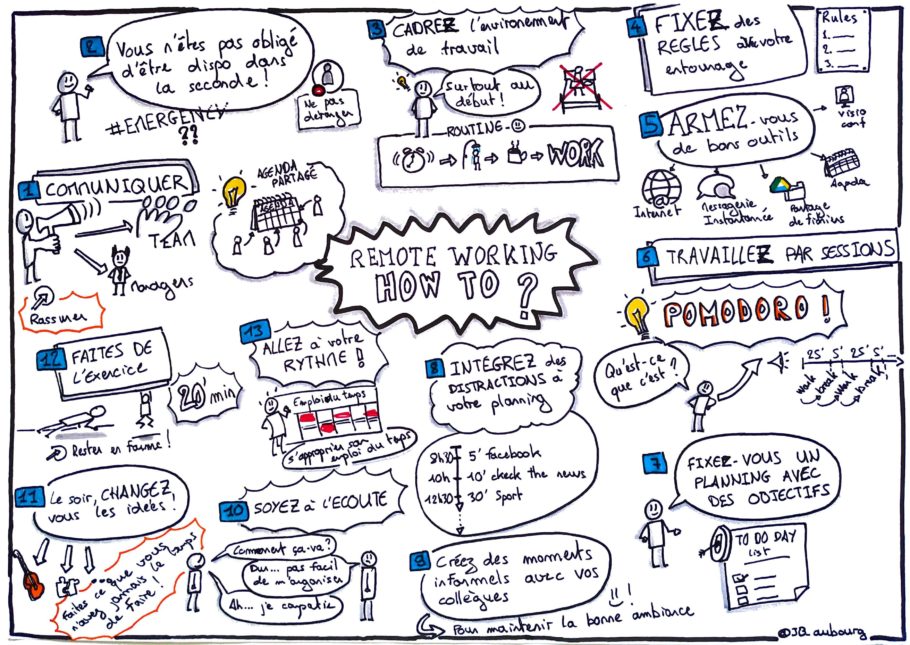 REMOTE WORKING
HOW TO ?
1 COMMUNIQUER
TEAM
Managers
Rassurer
AGENDA
PARTAGÉ
AGENDA
2
Vous n'êtes pas obligé
d'être dispo dans
la seconde !
#EMERGENCY
??
Ne pas
déranger
3 CADREZ l'environement
de travail
Surtout au
début !
ROUTINE
WORK
4 FIXEZ des
REGLES avec votre
entourage
Rules
1.
2.
3.
5 ARMEZ-vous
de bons outils
Visio
conf
Agenda
Internet
Messagerie
Instantanée
Partage
de fichiers
6 TRAVAILLEZ PAR SESSIONS
POMODORO !
Qu'est-ce
que c'est ?
25' 5' 25' 5'
Work break Work break
7
FIXEZ-VOUS UN
PLANNING AVEC
DES OBJECTIFS
TO DO DAY
list
8 INTÉGREZ des
DISTRACTIONS à
votre planning
8h30 5' facebook
10h 10' check the news
12h30 30' Sport
9
Créez des moments
informels avec vos
collègues
Pour maintenir la bonne ambiance
10 SOYEZ à l'ECOUTE
Comment ça-va ?
Euu... pas facil
de m'organiser
Ah... je compatie
11
Le soir, CHANGEZ
vous les idées !
Faites ce que vous
n'avez jamais le temps
de faire !
12 FAITES DE
L'Exercice
20 min
Rester en forme !
13
ALLEZ à votre
RYTHME !
Emploi du temps
s'approprier son
emploi du temps
©JB aubourg